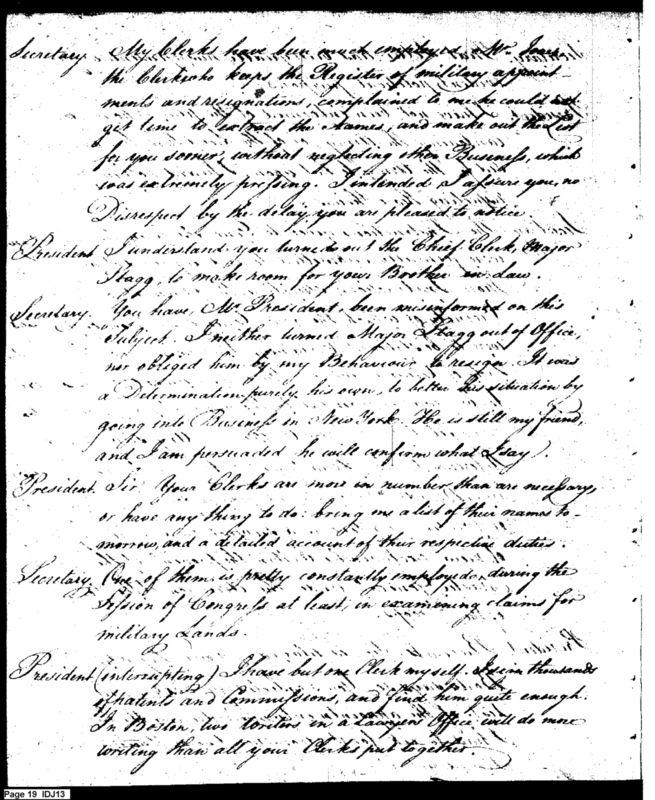 Secretary. My Clerks have been much employed. Mr. Jones
the Clerk who keeps the Register of military appoint-
ments and resignations, complained to me he could not
get time to extract the Names, and make out the List
for you sooner, without neglecting other Business, which
was extremely pressing. I intended, I assure you, no
Disrespect by the delay, you are pleased to notice.
President I understand you turned out the Chief Clerk, Major
Stagg, to make room for your Brother in Law.
Secretary. You have, Mr. President, been misinformed on this
Subject. I neither turned Major Stagg out of Office,
nor obliged him by my Behaviour to resign. It was
a Determination purely his own, to better his situation by
going into Business in New York. He is still my friend,
and I am persuaded he will confirm what I say.
President. Sir. Your Clerks are more in number than are necessary,
or have any thing to do: bring me a list of their names to-
morrow, and a detailed account of their respective duties.
Secretary. One of them, is pretty constantly employed, during the
Session of Congress at least, in examining claims for
military Lands.
President (interrupting) I have but one Clerk myself. I sign thousands
of patents and Commissions, and find him quite enough.
In Boston, two Writers in a Lawyers Office will do more
writing than all your Clerks put together.
Page 19 IDJ13